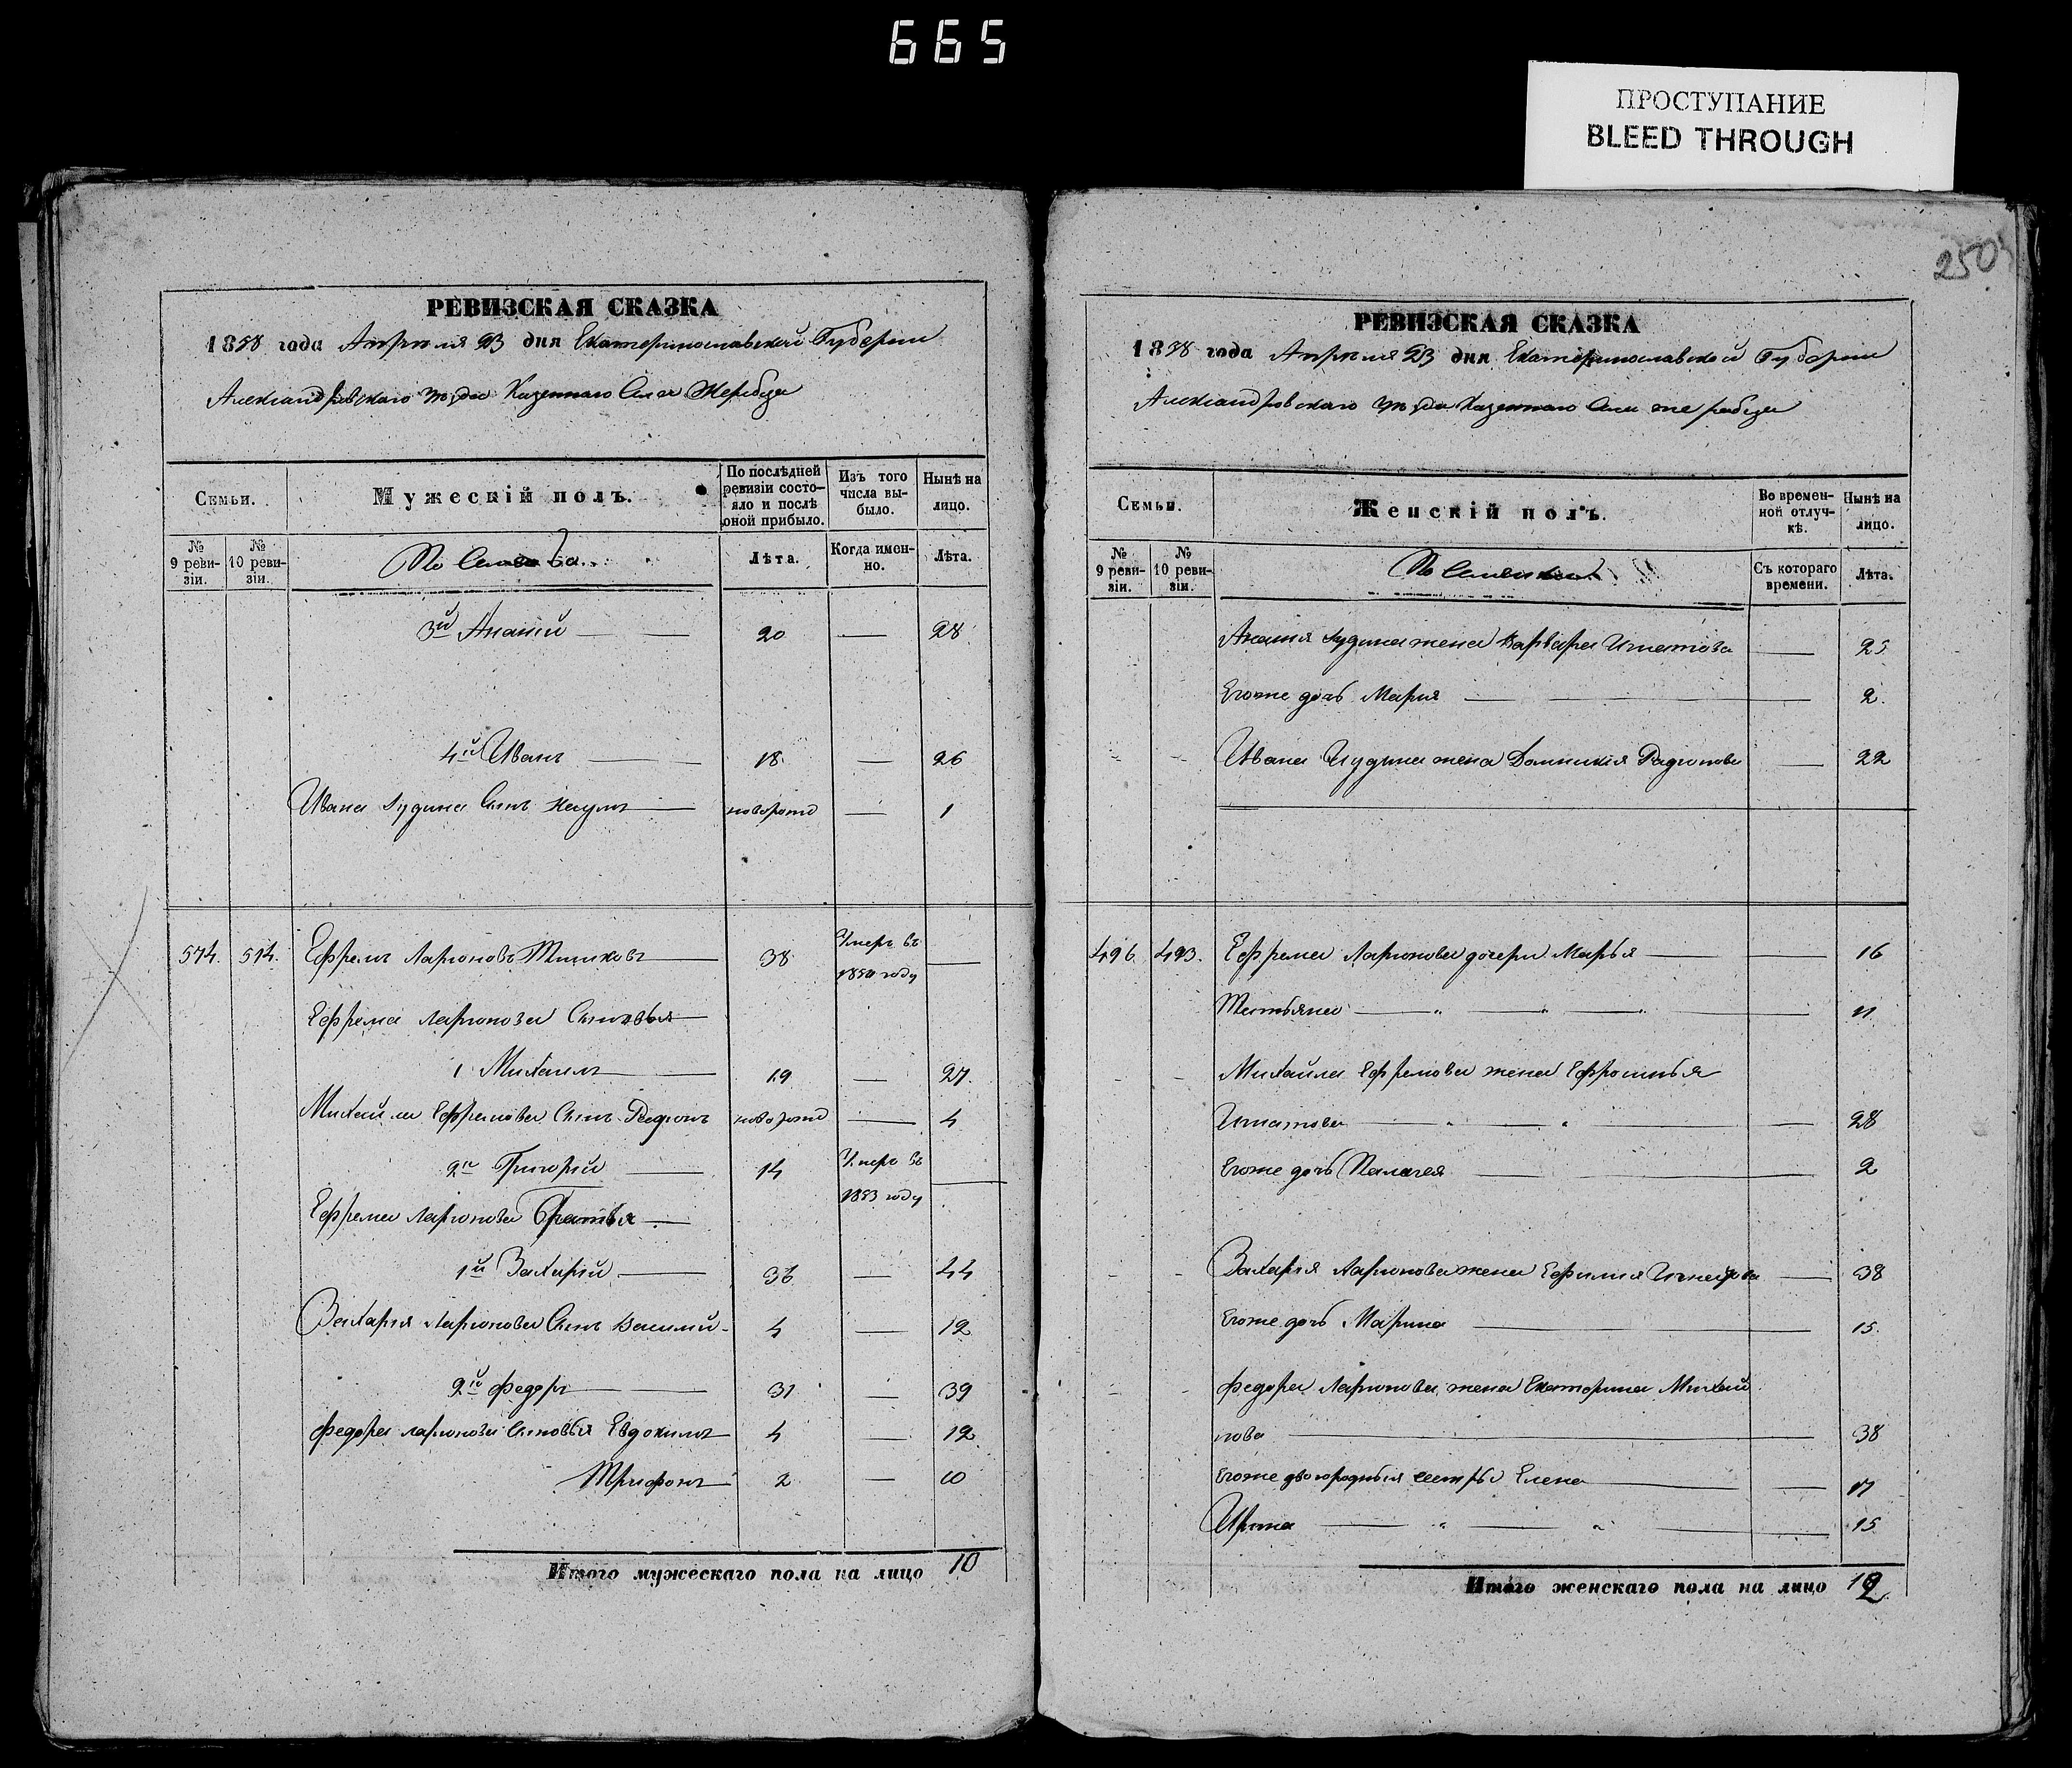 665
ПРОСТУПАНИЕ
BLEED THROUGH
250
РЕВИЗСКАЯ СКАЗКА
1858 года Апреля 23 дня Екатеринославской Губернии
Александровскаго уезда Казеннаго Села Жеребца
Семьи.
Мужескій полъ.
По послѣдней ревизіи состо-
яло и послѣ
оной прибыло.
Изъ того
числа вы-
было.
Нынѣ на
лицо.
№
9 реви-
зіи.
№
10 реви-
зіи.
Лѣта.
Когда имен-
но.
Лѣта.
3й Ананій — 20 — 28
4й Иванъ — 18 — 26
Ивана Іудина Сынъ Наумъ — новорожд — 1
574. 514. Ефремъ Ларіоновъ — 38 Умеръ въ 1850 году —
Ефрема Ларіонова Сыновья
1 Михаилъ — 19 — 27.
Михаила Ефремова Сынъ Родіонъ новорожд — 4
2й Григорій — 14 Умеръ въ 1853 году —
Ефрема Ларіонова Братья
1й Захарій — 36 — 44
Захарія Ларіонова Сынъ Василій — 4 — 12
2й Федоръ — 31 — 39
Федора Ларіонова Сыновья Евдокимъ — 4 — 12
Трифонъ — 2 — 10
Итого мужескаго пола на лицо 10
РЕВИЗСКАЯ СКАЗКА
1858 года Апреля 23 дня Екатеринославской Губернии
Александровскаго уезда Казеннаго Села Жеребца
Семьи.
Женскій полъ.
Во времен-
ной отлуч-
кѣ.
Нынѣ на
лицо.
№
9 реви-
зіи.
№
10 реви-
зіи.
Съ котораго
времени.
Лѣта.
Ананія Іудина жена Варвара Игнатова — 25
Егоже дочь Марія — 2.
Ивана Іудина жена Домникія Радионова — 22
496. 493. Ефрема Ларіонова дочери Марья — 16
Татьяна — 11
Михайла Ефремова жена Ефросинья
Игнатова — 28
Егоже дочь Палагея — 2
Захарія Ларіонова жена Ефимия — 38
Егоже дочь Марина — 15.
Федора Ларіонова жена Екатерина Михай
лова — 38
Егоже двоюродныя сестры Елена — 17
Ирина — 15
Итого женскаго пола на лицо 12